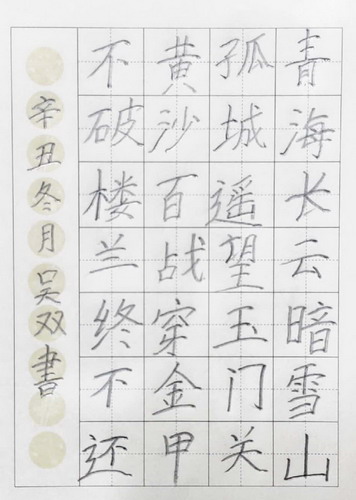 青海长云暗雪山
孤城遥望玉门关
黄沙百战穿金甲
不破楼兰终不还
辛丑冬月吴双書